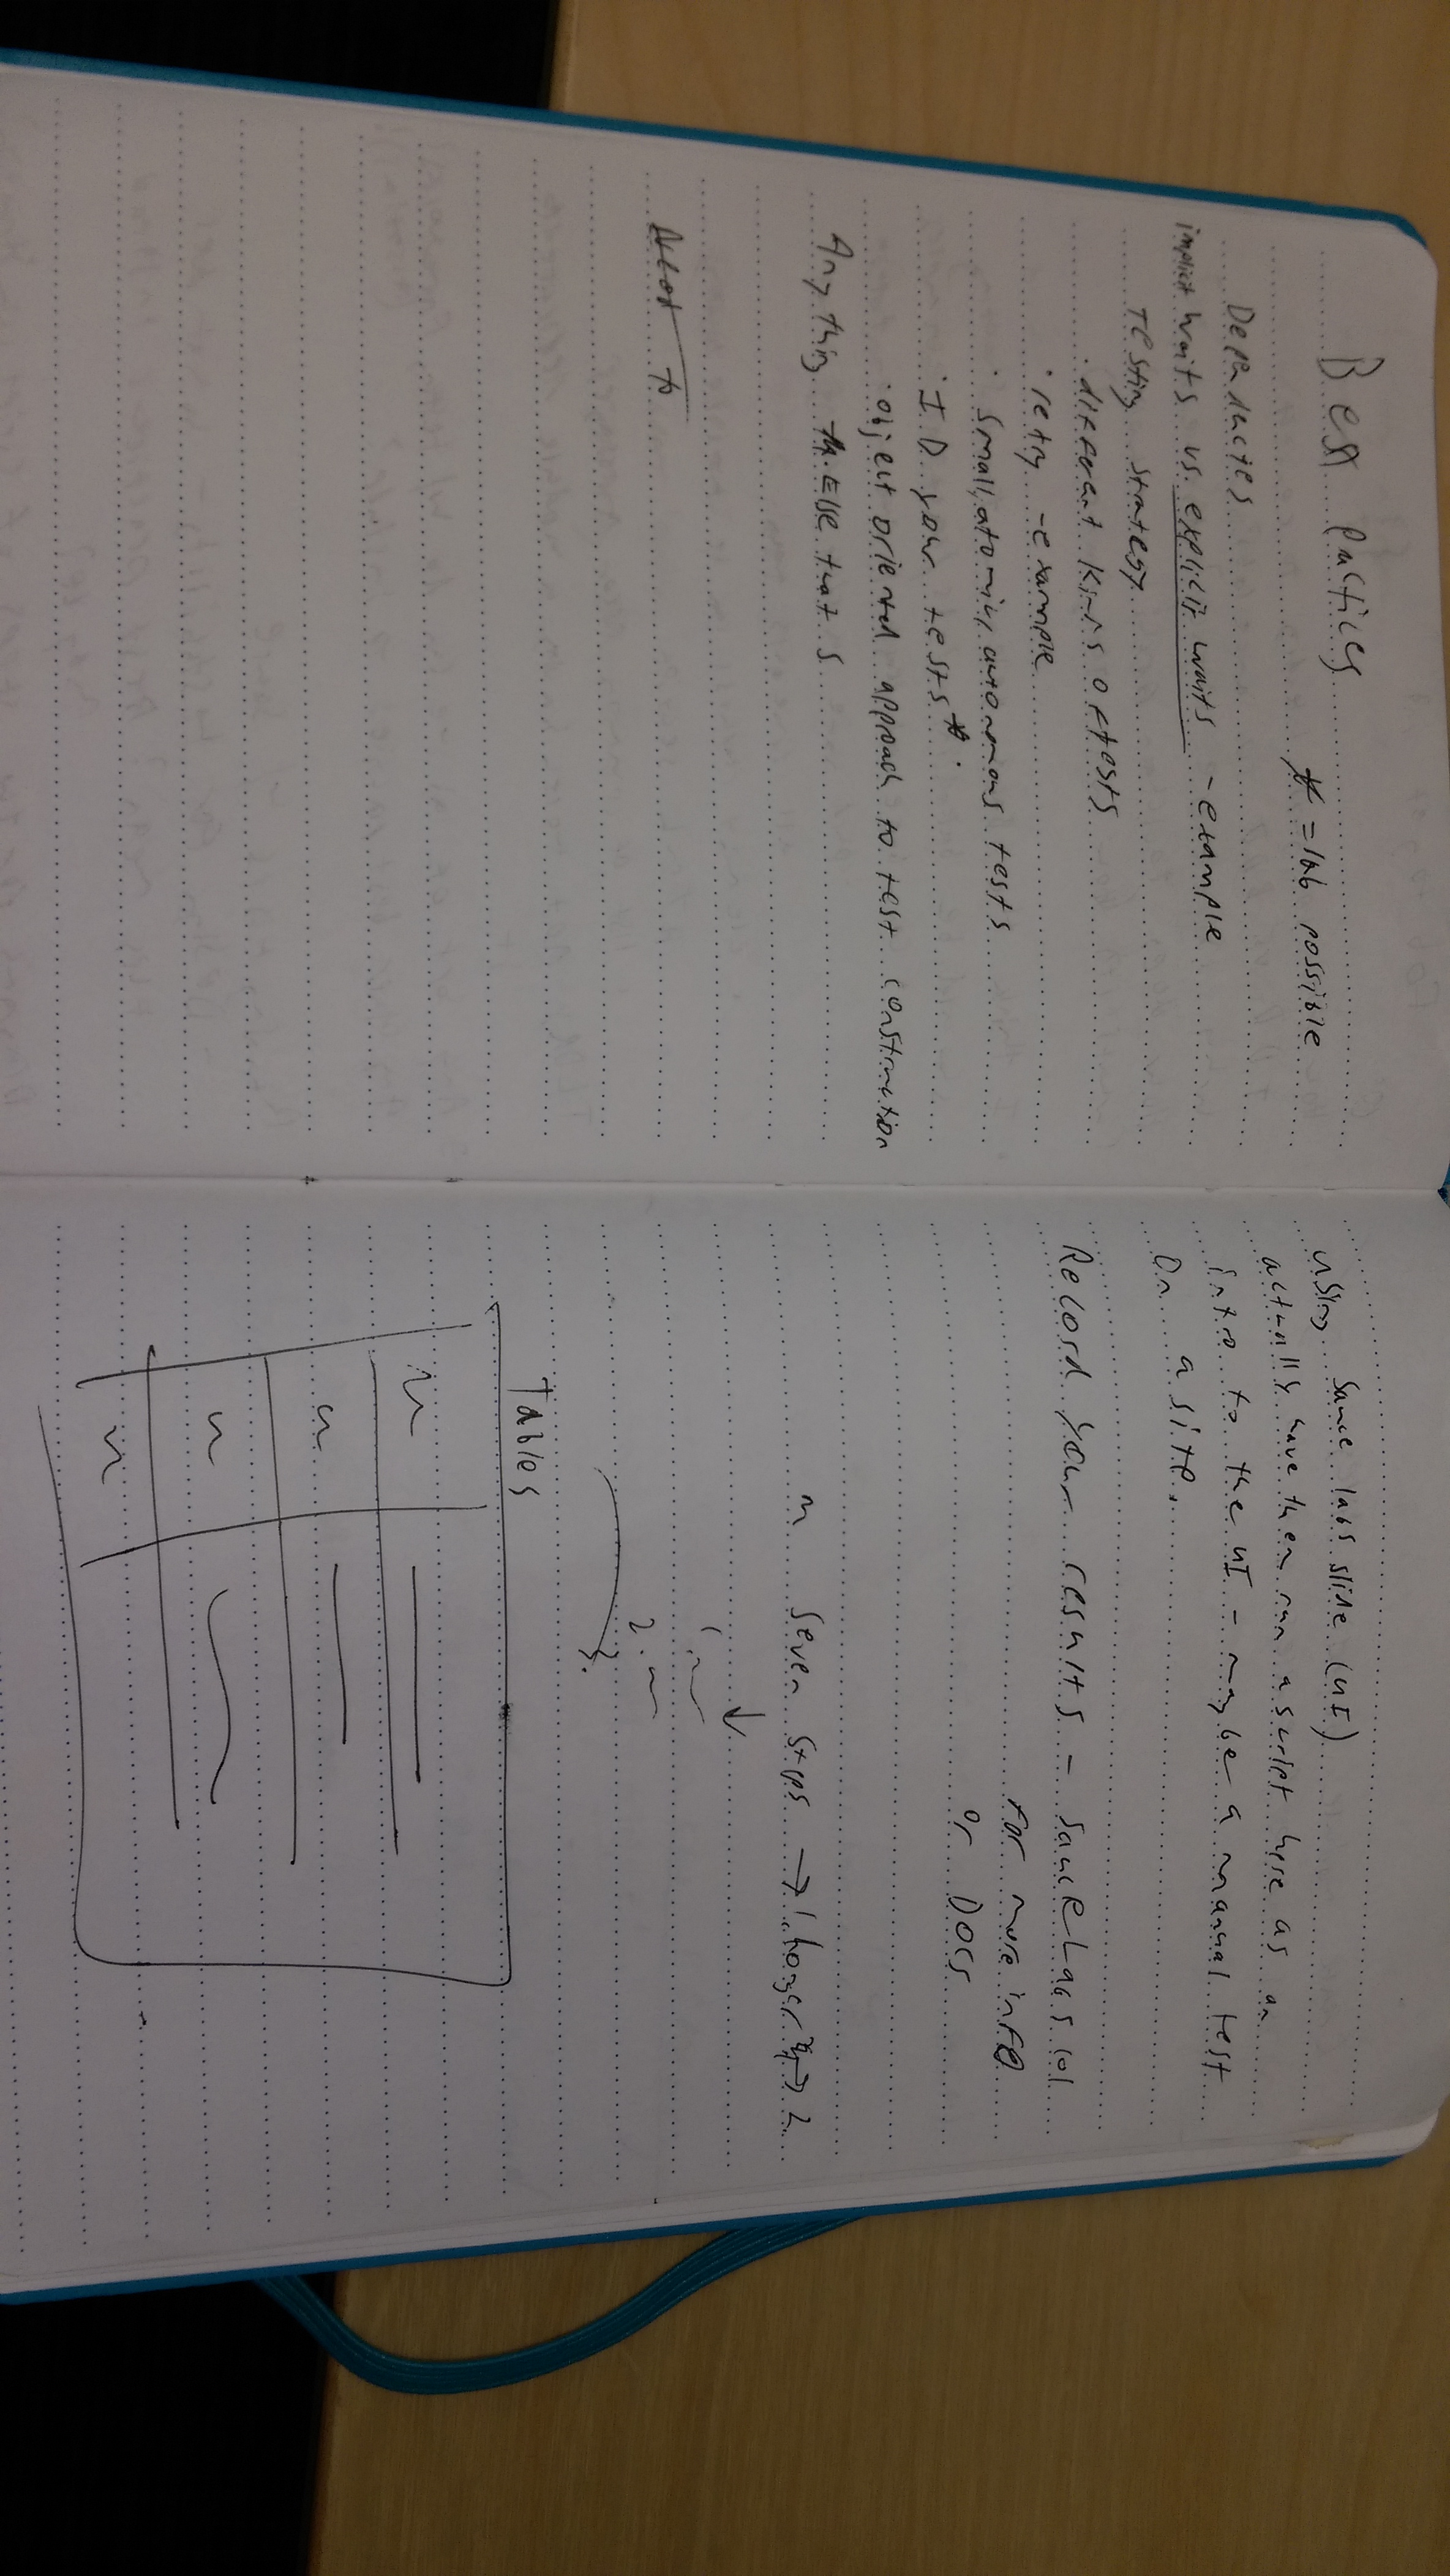 Best Practices
* = lab possible
Dependacies
implicit waits vs. explicit waits - example
Testing strategy
· different kinds of tests
· retry - example
· Small, atomic, autonomous tests
· ID your tests *
· object oriented approach to test construction
Anything Else that s
using Sauce labs slide (UI)
actually have them run a script here as an
intro to the UI - maybe a manual test
On a site.
Record your results - SauceLabs.col
for more info
or Docs
Seven Steps → 1. longer → 2.
↓
1
2.
3.
Tables